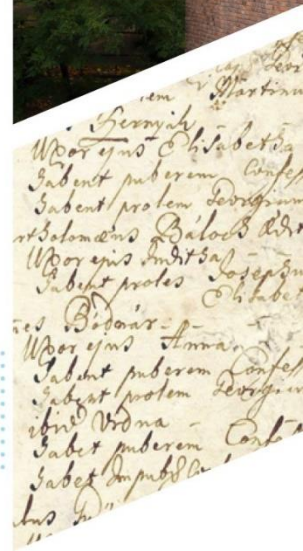 Martinu
Hernyák
Uxor ejus Elisabetha
Habent puberem Confes
Habent prolem Georgium
rtholomæus Baloch Ædit
Uxor ejus Juditha
Habent proles Josephu
Elisabe
nes Bodnár
Uxor ejus Anna
Habent puberem Confess
Habent prolem Georgiu
ibid Vrona
Habet puberem Confes
Habet Impub